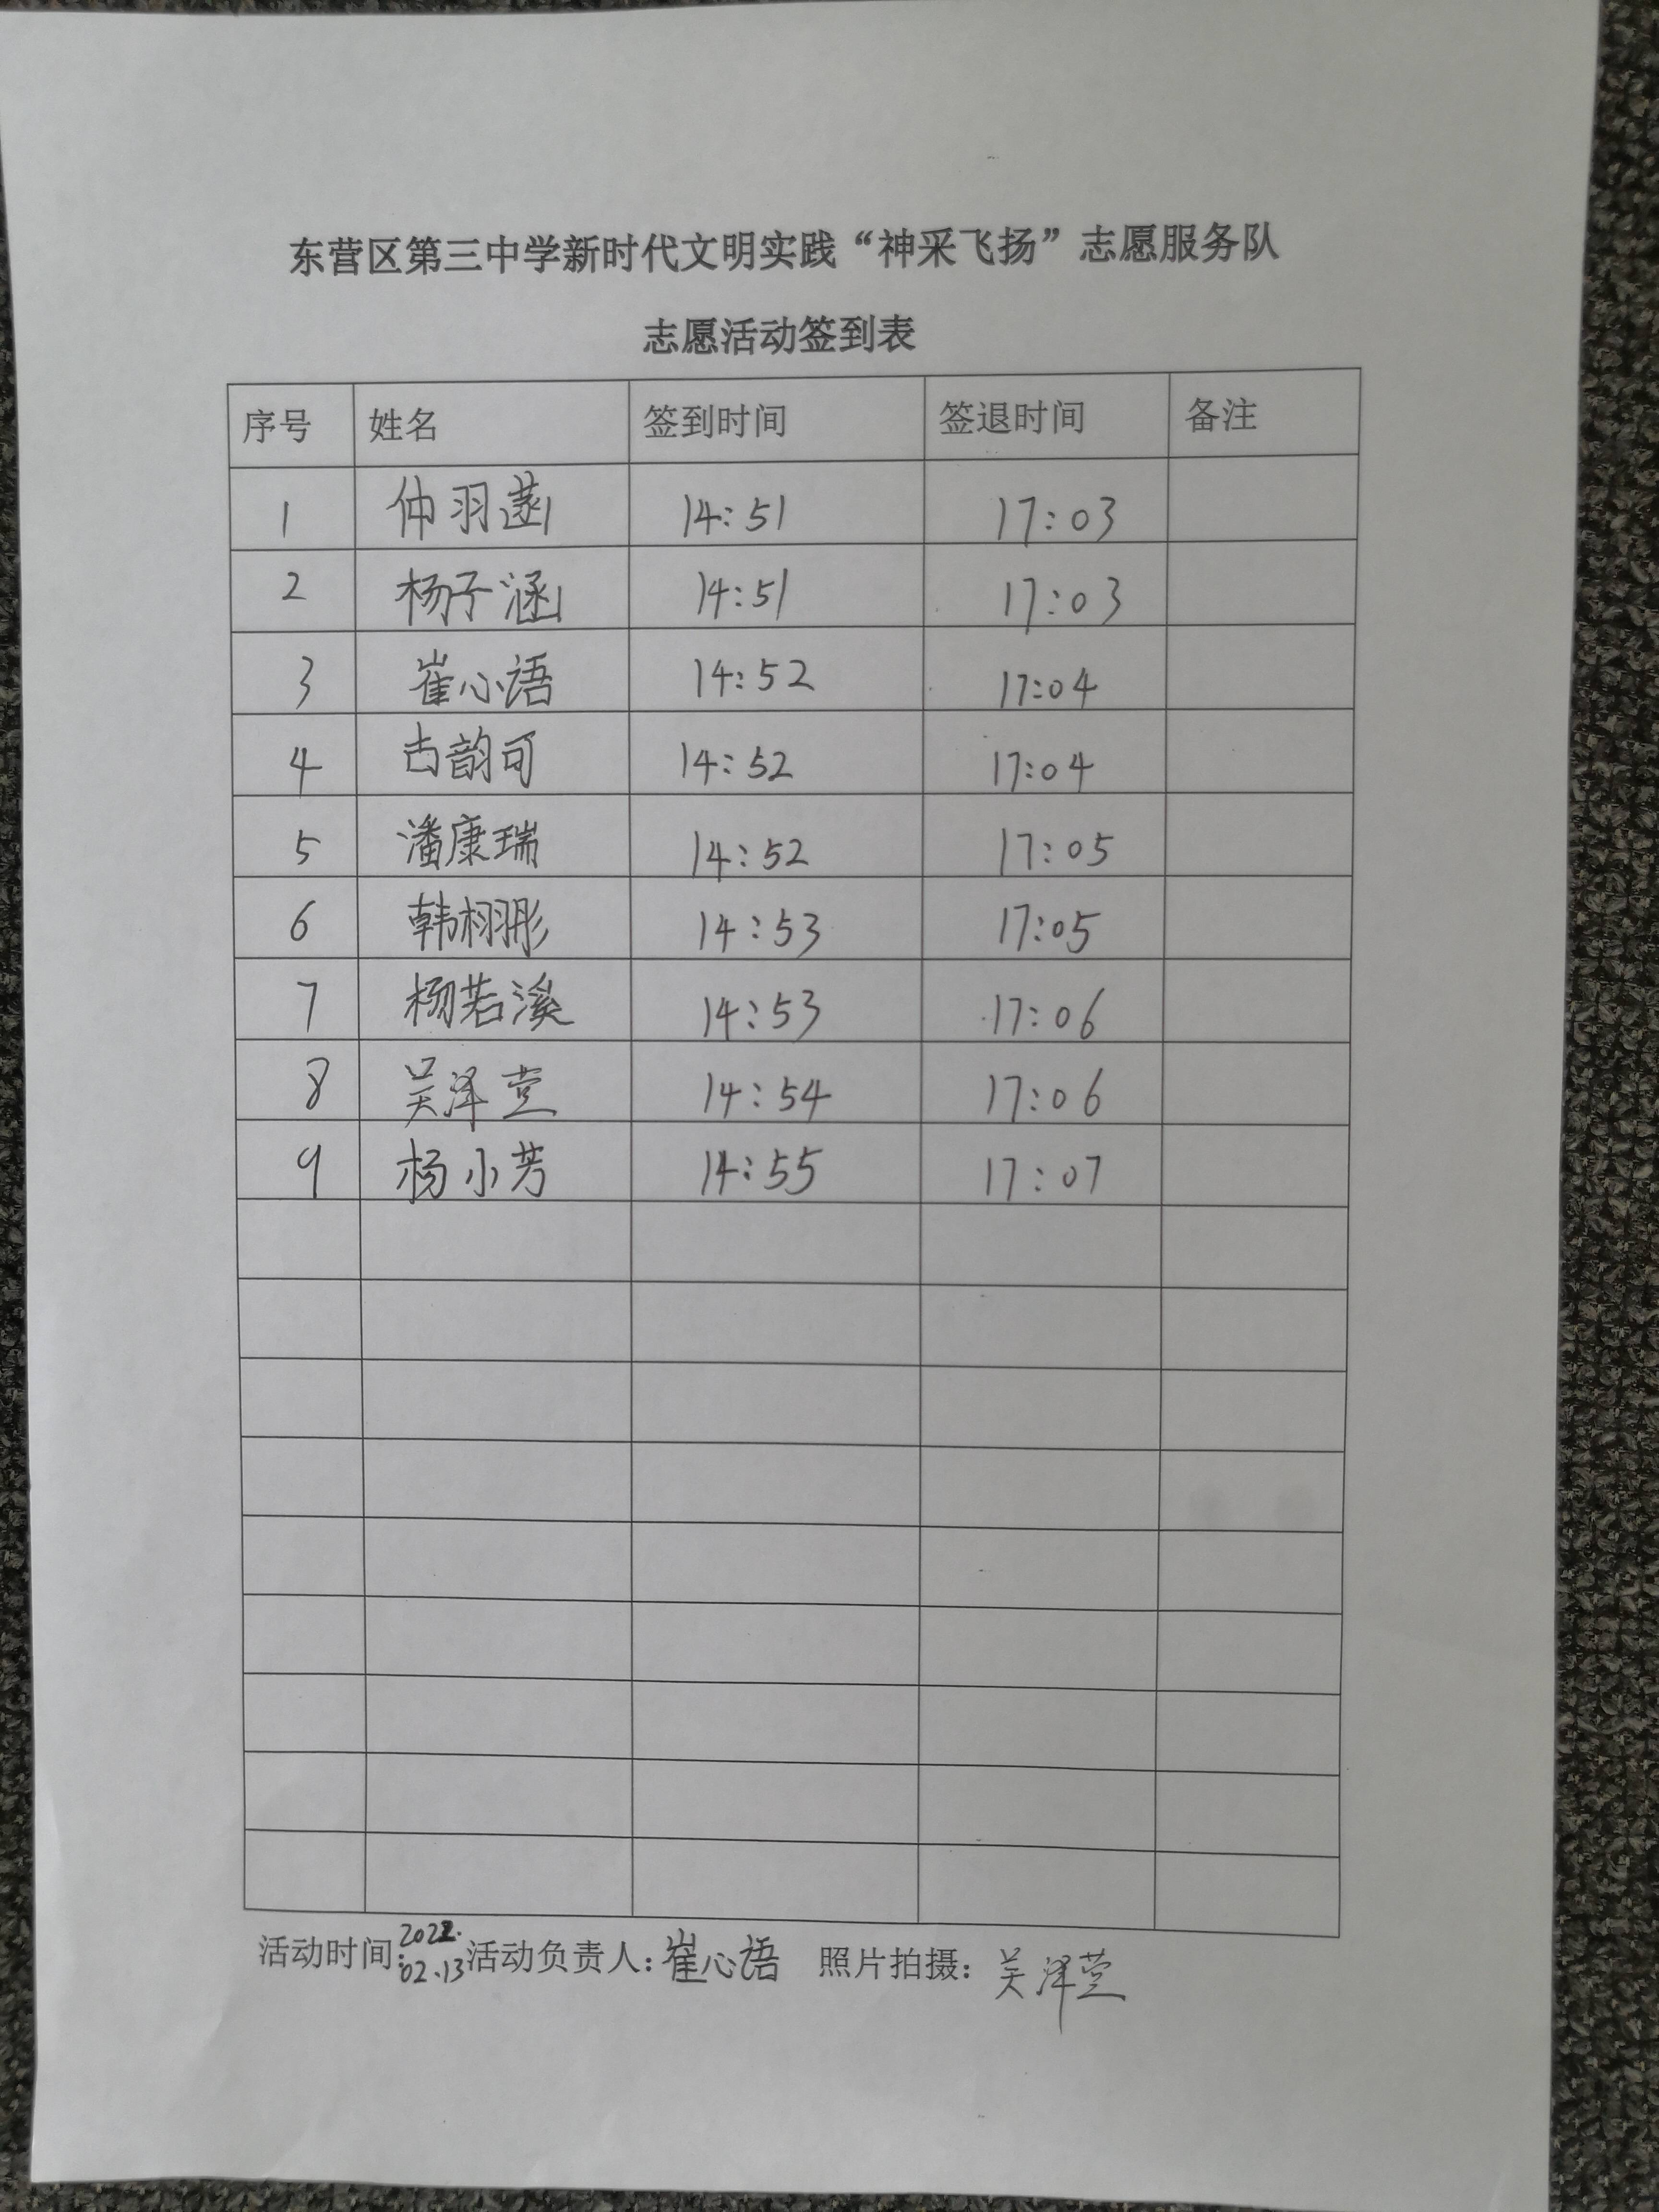 东营区第三中学新时代文明实践“神采飞扬”志愿服务队
志愿活动签到表
序号 姓名 签到时间 签退时间 备注
1 仲羽菡 14:51 17:03
2 杨子涵 14:51 17:03
3 崔心语 14:52 17:04
4 古韵可 14:52 17:04
5 潘康瑞 14:52 17:05
6 韩栩彤 14:53 17:05
7 杨若溪 14:53 17:06
8 吴泽萱 14:54 17:06
9 杨小芳 14:55 17:07
活动时间:2022.02.13 活动负责人:崔心语 照片拍摄:吴泽萱